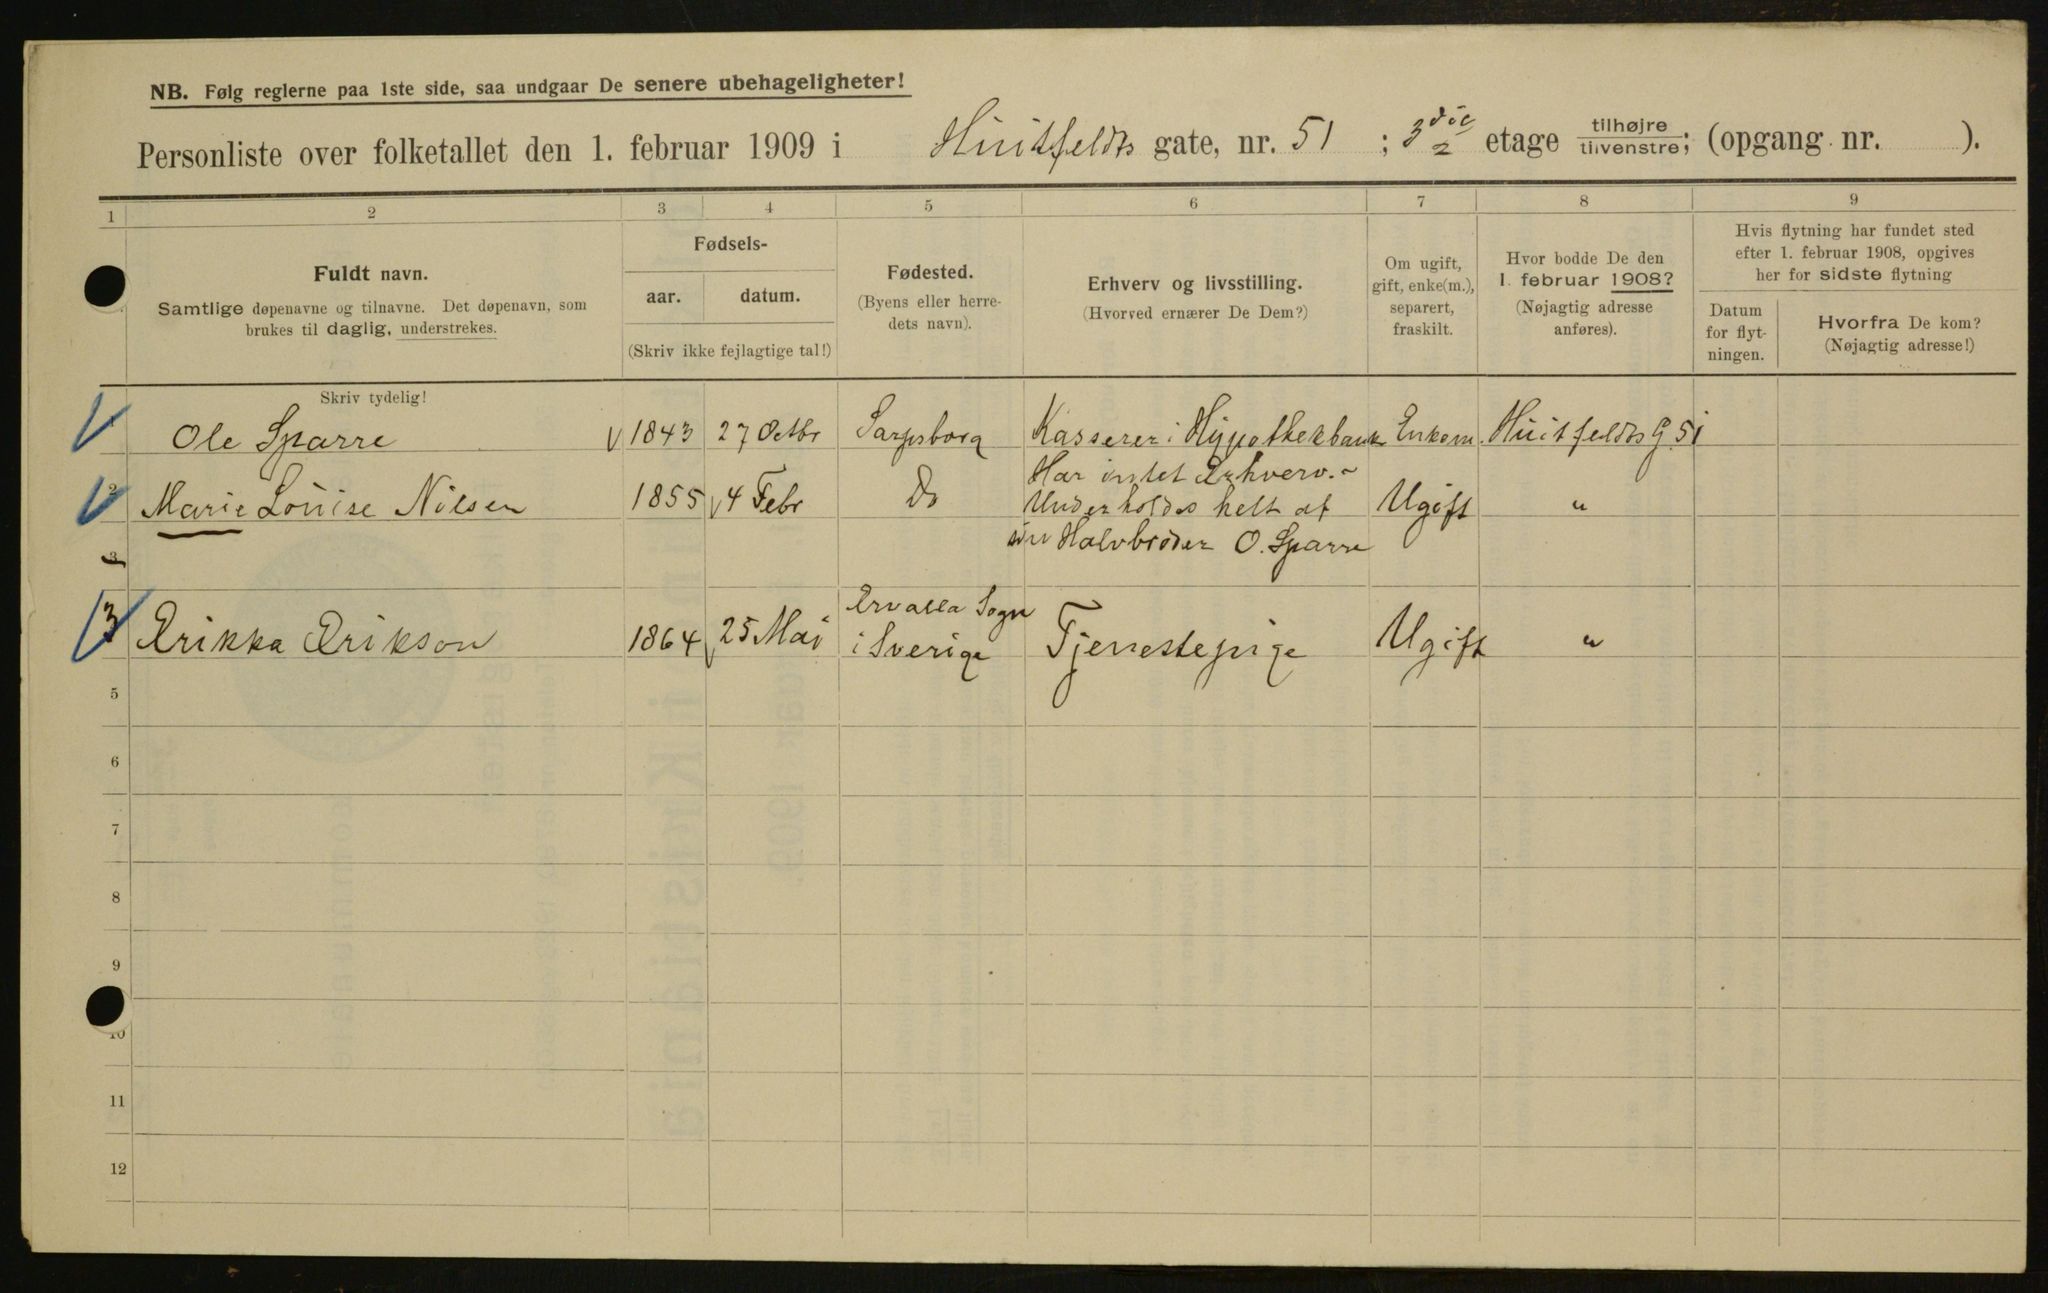 NB. Følg reglerne paa 1ste side, saa undgaar De senere ubehageligheter!
Personliste over folketallet den 1. februar 1909 i Huitfeldts gate, nr. 51 ; 3die etage tilhøjre tilvenstre; (opgang nr. ).
1 2 3 4 5 6 7 8 9
Fuldt navn.
Samtlige døpenavne og tilnavne. Det døpenavn, som
brukes til daglig, understrekes.
Skriv tydelig!
Fødsels-
aar. datum.
(Skriv ikke fejlagtige tal!)
Fødested.
(Byens eller herre-
dets navn).
Erhverv og livsstilling.
(Hvorved ernærer De Dem?)
Om ugift,
gift, enke(m.),
separert,
fraskilt.
Hvor bodde De den
1. februar 1908?
(Nøjagtig adresse
anføres).
Hvis flytning har fundet sted
efter 1. februar 1908, opgives
her for sidste flytning
Datum
for flyt-
ningen.
Hvorfra De kom?
(Nøjagtig adresse!)
Ole Sparre 1843 27 Octbr Sarpsborg Kasserer i Hypothekbank Enkem. Huitfeldts G 51
2 Marie Louise Nilsen 1855 4 Febr Do Har intet Erhverv. -
Underholdes helt af
sin Halvbroder O. Sparre
Ugift "
3
3 Erikka Erikson 1864 25 Mai Ervalla Sogn
i Sverige
Tjenestepige Ugift "
5
6
7
8
9
10
11
12